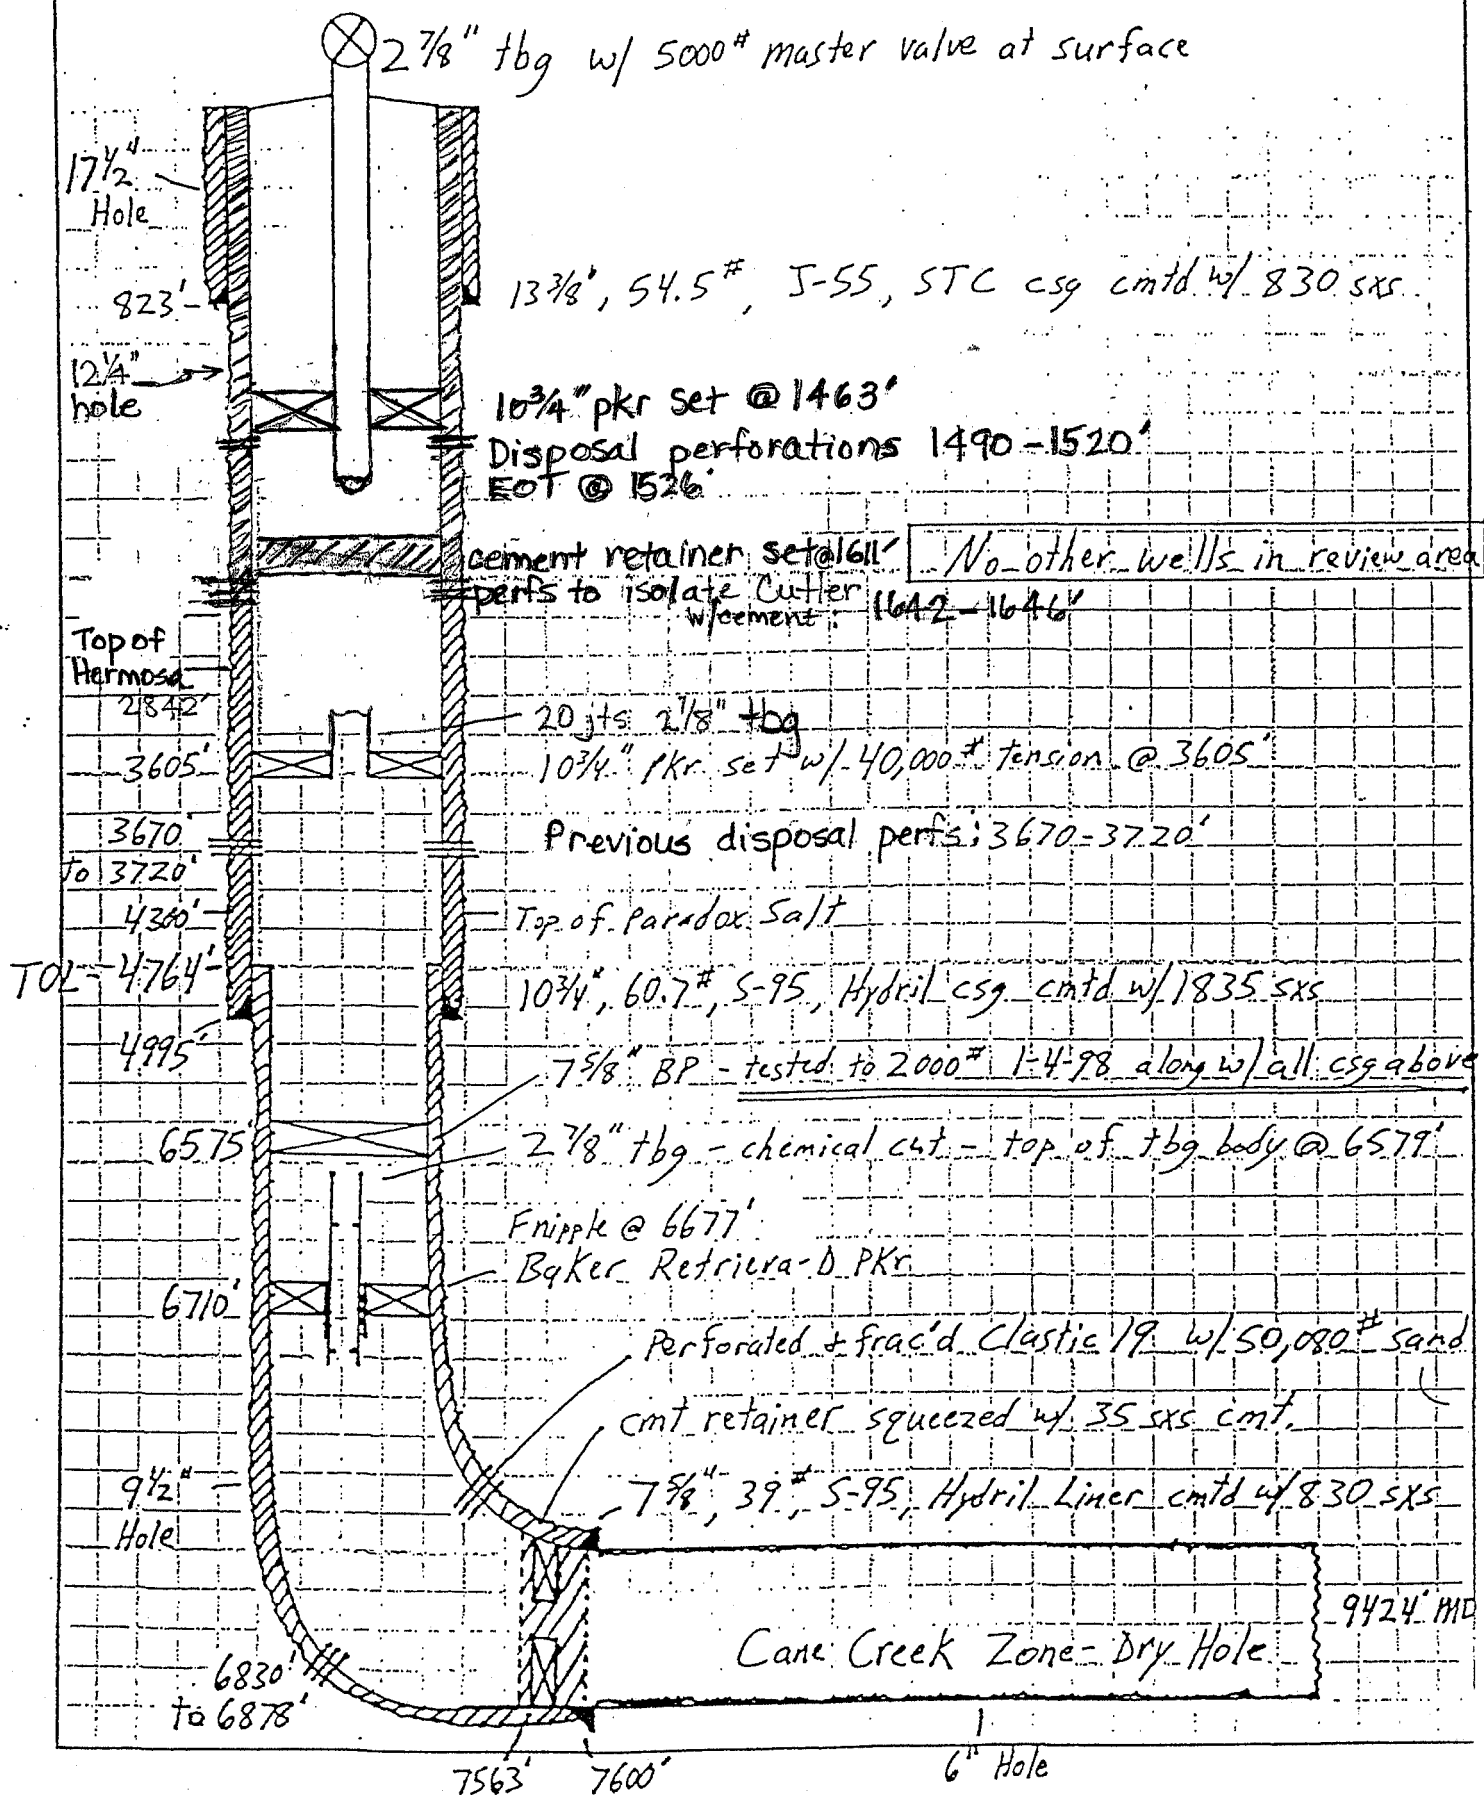 2 7/8" tbg w/ 5000# master valve at surface
17 1/2"
Hole
823'
13 3/8", 54.5#, J-55, STC csg cmtd w/ 830 sxs
12 1/4"
hole
10 3/4" pkr set @ 1463'
Disposal perforations 1490-1520'
EOT @ 1526'
cement retainer set@1611'
No other wells in review area
perfs to isolate Cutler
w/cement: 1642-1646'
Top of
Hermosa
2842'
20 jts 2 7/8" tbg
3605'
10 3/4" Pkr set w/ 40,000# tension @ 3605'
3670'
to 3720'
Previous disposal perfs: 3670-3720'
4360'
Top of Paradox Salt
TOL - 4764'
10 3/4", 60.7#, S-95, Hydril csg cmtd w/ 1835 sxs
4995'
7 5/8" BP - tested to 2000# 1-4-98 along w/ all csg above
6575'
2 7/8" tbg - chemical cut - top of tbg body @ 6579'
F nipple @ 6677'
Baker Retrieva-D Pkr
6710'
Perforated + frac'd Clastic 19 w/ 50,080# sand
cmt retainer squeezed w/ 35 sxs cmt.
9 1/2"
Hole
7 5/8", 39#, S-95, Hydril Liner cmtd w/ 830 sxs
9424' MD
Cane Creek Zone - Dry Hole
6830'
to 6878'
7563'
7600'
6" Hole